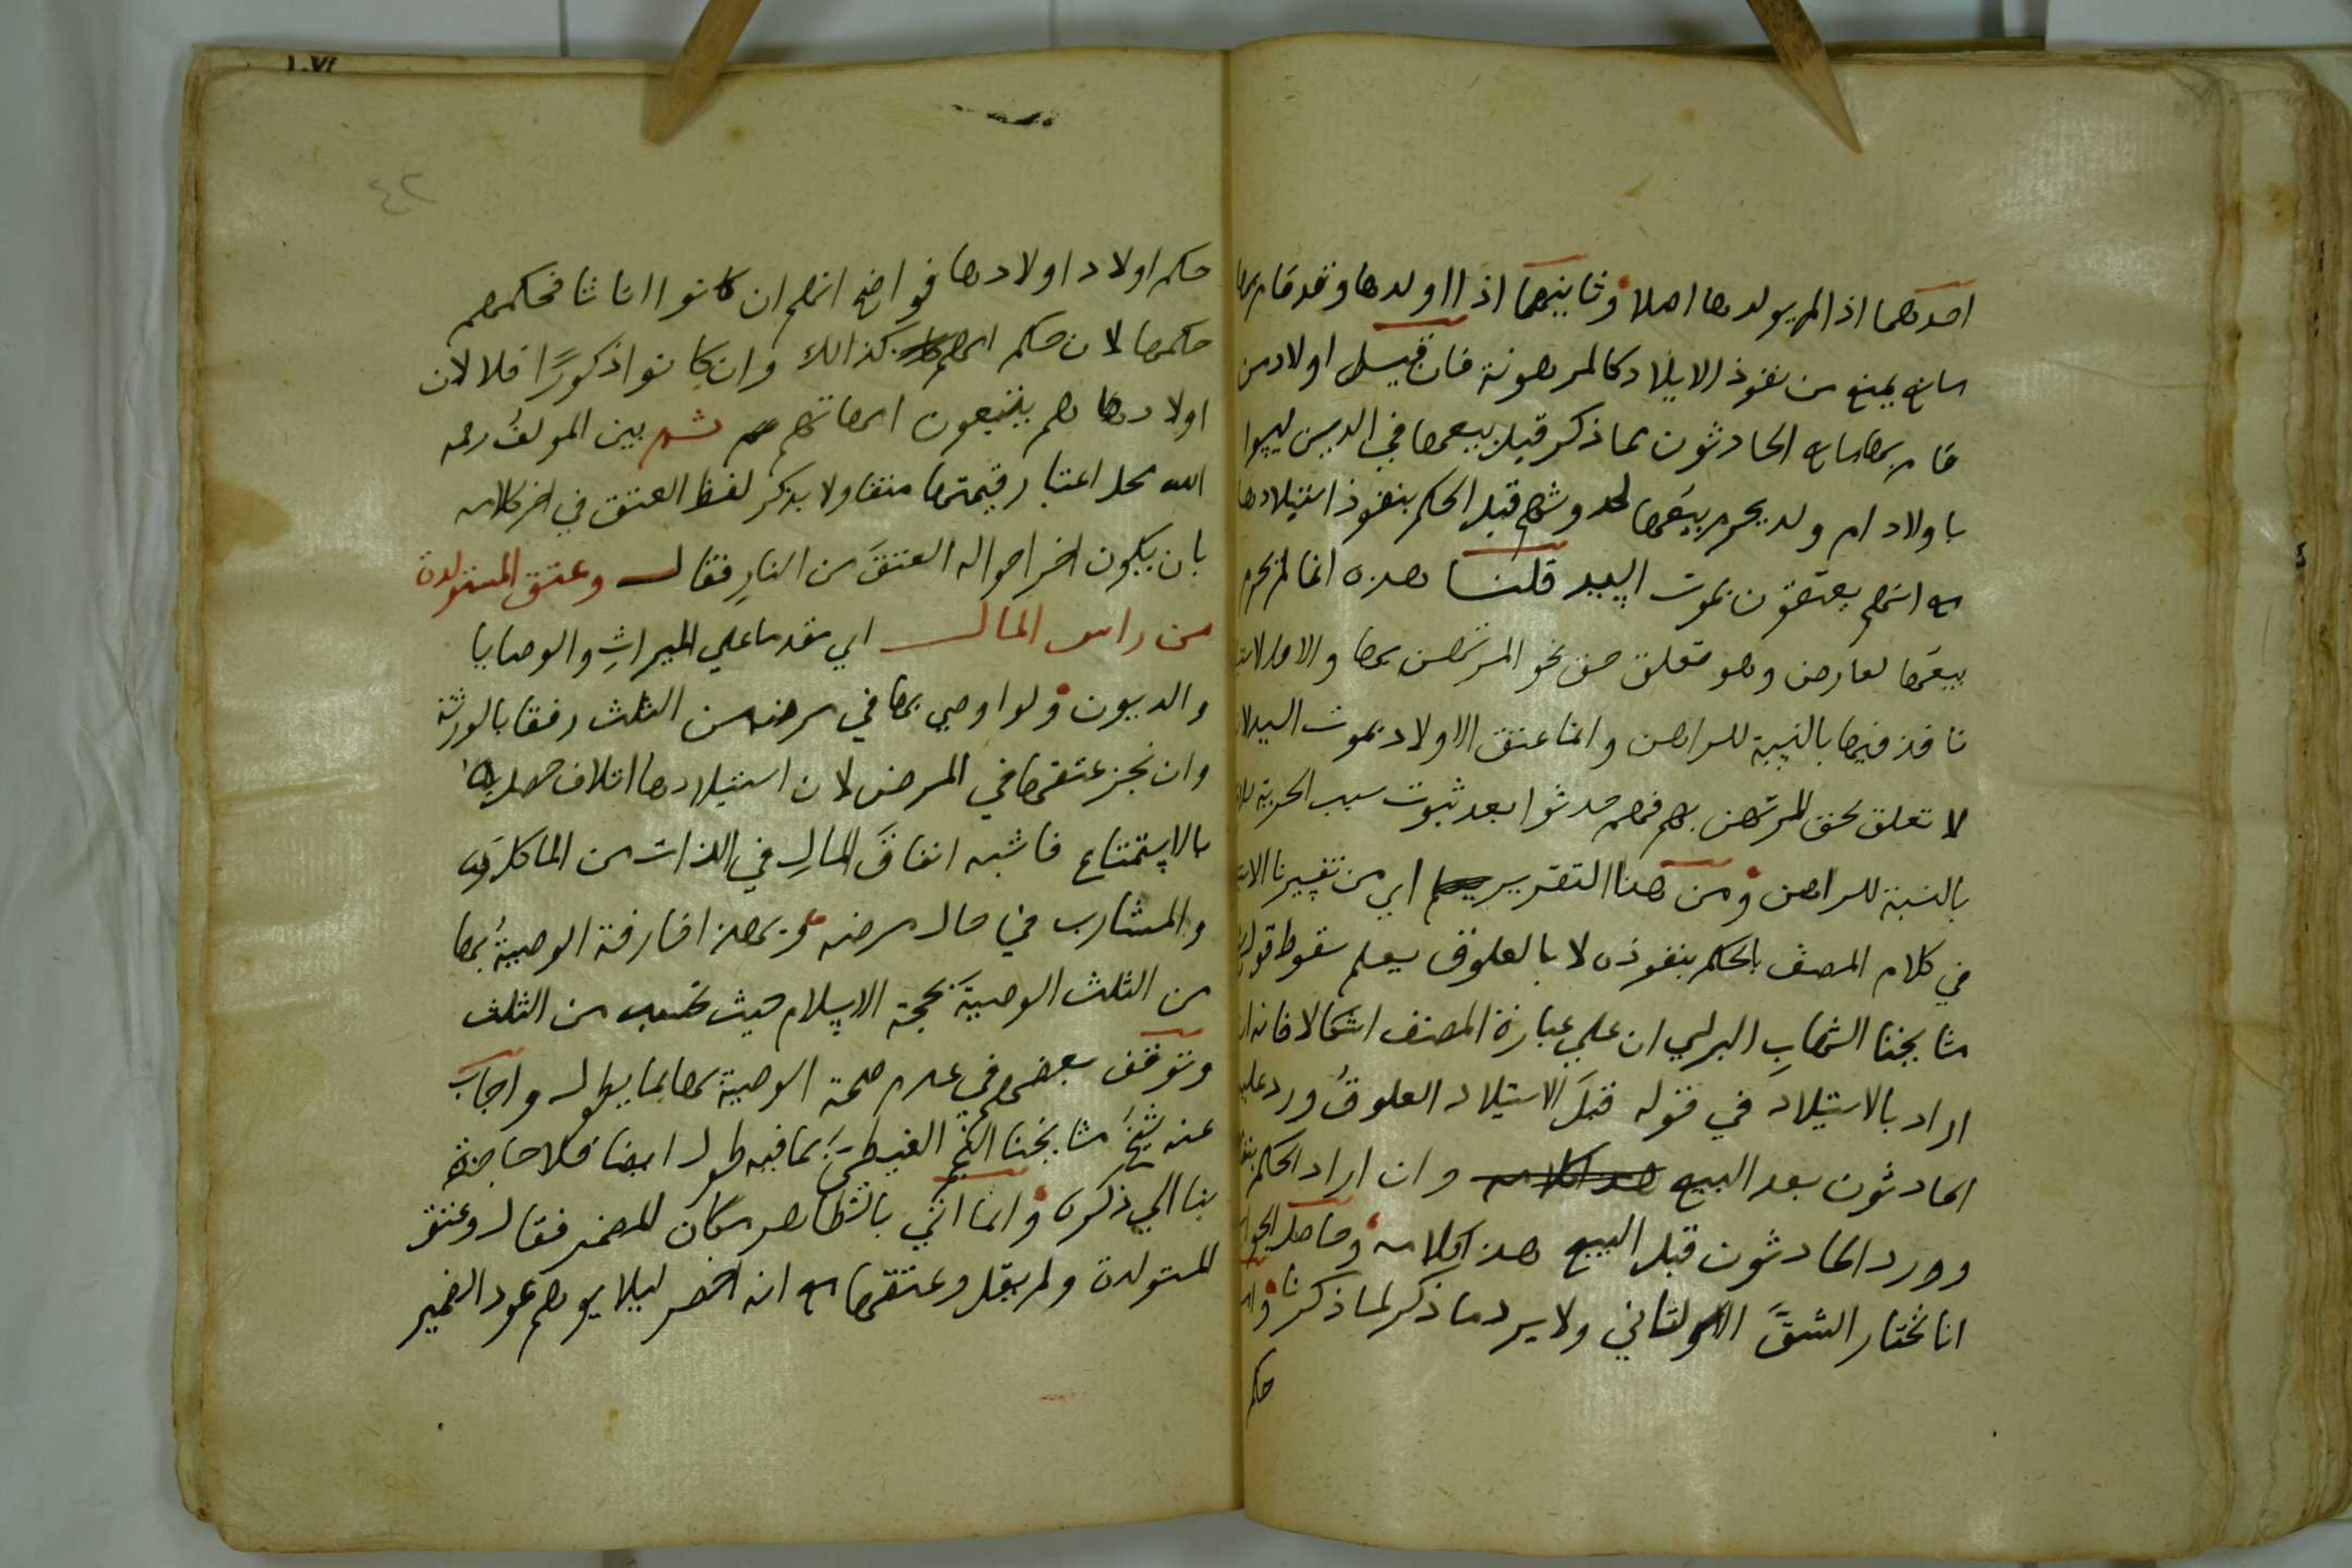 احدهما اذا لم يولدها اصلا وثانيتهما اذا اولدها وقد قام بها
مانع يمنع من نفوذ الايلاد كالمرهونة فان قيل اولاد من
قام بها مانع الحادثون لما ذكر قبل بيعها في الدين ليسوا
باولاد ام ولد يحرم بيعها لحدوثهم قبل الحكم بنفوذ استيلادها
مع انهم يعتقون بموت السيد قلنا هذه انما لم يحرم
بيعها لعارض وهو تعلق حق نحو المرتهن بها والا فالاستيلاد
نافذ فيها بالنسبة للراهن وانما عتق الاولاد بموت السيد لانه
لا تعلق لحق المرتهن بهم فهم حدثوا بعد ثبوت سبب الحرية للام
بالنسبة للراهن ومن هنا التقرير اي من تفسيرنا الاستيلاد
في كلام المصنف بالحكم بنفوذه لا بالعلوق يعلم سقوط قول
مشايخنا الشهاب البرلسي ان علي عبارة المصنف اشكالا فانه ان
اراد بالاستيلاد في قوله قبل الاستيلاد العلوق ورد عليه
الحادثون بعد البيع وان اراد الحكم
وورد الحادثون قبل البيع هذا كلامه وحاصل الجواب
انا نختار الشق الثاني ولا يرد ما ذكر لما ذكرنا
حكم
٤٢
حكم اولاد اولادها فواضح انهم ان كانوا اناثا فحكمهم
حكمها لان حكم امهم كذالك وان كانوا ذكورا فلا لان
اولادهم يتبعون امهاتهم ثم بين المولف رحمه
الله محل اعتبار قيمتها متفاولا بذكر لفظ العتق في اخر كلامه
بان يكون اخر احواله العتق من النار فقال وعتق المستولدة
من راس المال اي مقدما علي الميراث والوصايا
والديون ولو اوصي بها في مرضه من الثلث رفقا بالورثة
وان نجز عتقها في المرض لان استيلادها اتلاف حصل
بالاستمتاع فاشبه انفاق المال في اللذات من الماكل
والمشارب في حال مرضه وبهذا فارقت الوصية بها
من الثلث الوصية بحجة الاسلام حيث تحسب من الثلث
وتوقف بعضهم في عدم صحة الوصية بها بما يطول واجاب
عنه شيخ مشايخنا النجم الغيطي بما فيه طول ايضا فلا حاجة
بنا الي ذكره وانما اتي بالظاهر مكان المضمر فقال وعتق
المستولدة ولم يقل وعتقها مع انه اخصر ليلا يوهم عود الضمير